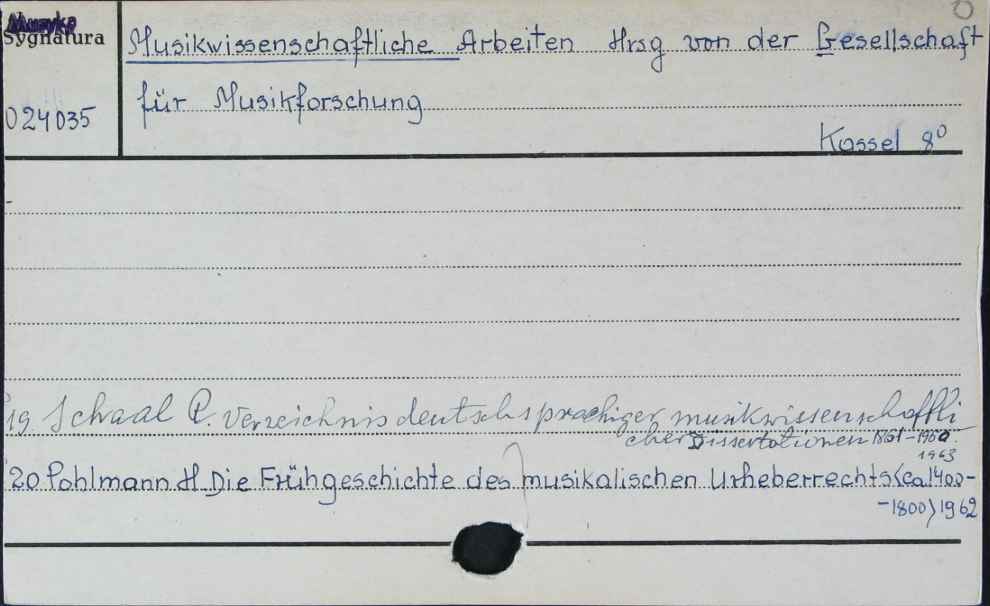 Muzyka
Sygnatura
Musikwissenschaftliche Arbeiten Hrsg von der Gesellschaft
für Musikforschung
024035
Kassel 8°
19 Schaal R. Verzeichnis deutschsprachiger musikwissenschaftli
cher Dissertationen 1861-1960.
1963
20 Pohlmann H Die Frühgeschichte des musikalischen Urheberrechts (ca 1400-
-1800) 1962